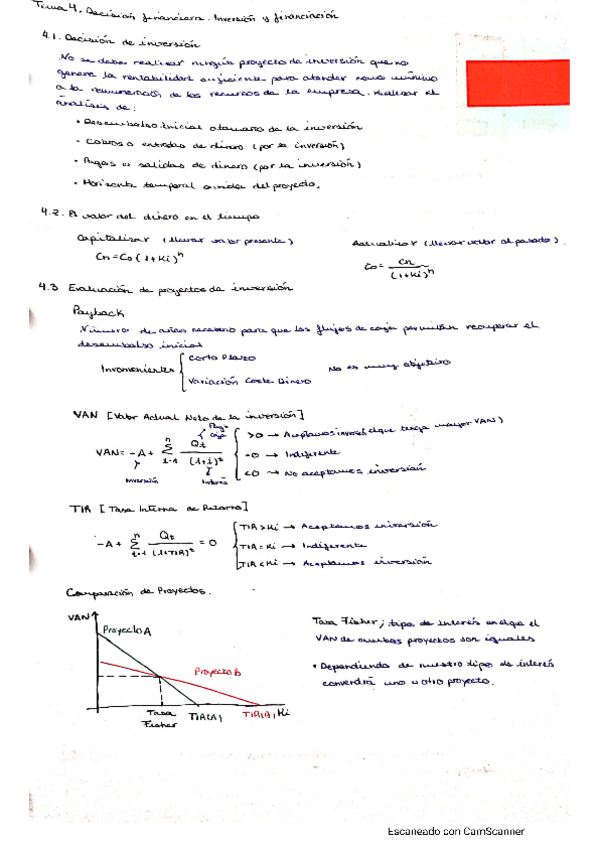 Tema 4. Decisión financiera. Inversión y financiación
4.1. Decisión de inversión
No se debe realizar ningún proyecto de inversión que no
genere la rentabilidad suficiente para atender como mínimo
a la remuneración de los recursos de la empresa. Realizar el
análisis de:
• Desembolso inicial o tamaño de la inversión
• Cobros o entradas de dinero (por la inversión)
• Pagos o salidas de dinero (por la inversión)
• Horizonte temporal o vida del proyecto.
4.2. El valor del dinero en el tiempo
Capitalizar (llevar valor presente)
Cn=Co(1+Ki)^n
Actualizar (llevar valor al pasado).
Co= Cn/(1+Ki)^n
4.3 Evaluación de proyectos de inversión
Payback
Número de años necesario para que los flujos de caja permitan recuperar el
desembolso inicial
Inconvenientes { Corto Plazo
Variación Coste Dinero
No es muy objetivo
VAN [Valor Actual Neto de la inversión]
VAN= -A + Σ Qt/(1+i)^t
n
t=1
Inversión
Interés
>0 → Aceptamos (el que tenga mayor VAN)
=0 → Indiferente
<0 → No aceptamos inversión
TIR [Tasa Interna de Retorno]
-A + Σ Qt/(1+TIR)^t = 0
n
t=1
TIR > Ki → Aceptamos inversión
TIR = Ki → Indiferente
TIR < Ki → Aceptamos inversión
Comparación de Proyectos.
VAN
Proyecto A
Proyecto B
Tasa
Fisher
TIR(A)
TIR(B)
Ki
Tasa Fisher; tipo de interés en el que el
VAN de ambos proyectos son iguales
• Dependiendo de nuestro tipo de interés
convendrá uno u otro proyecto.
Escaneado con CamScanner